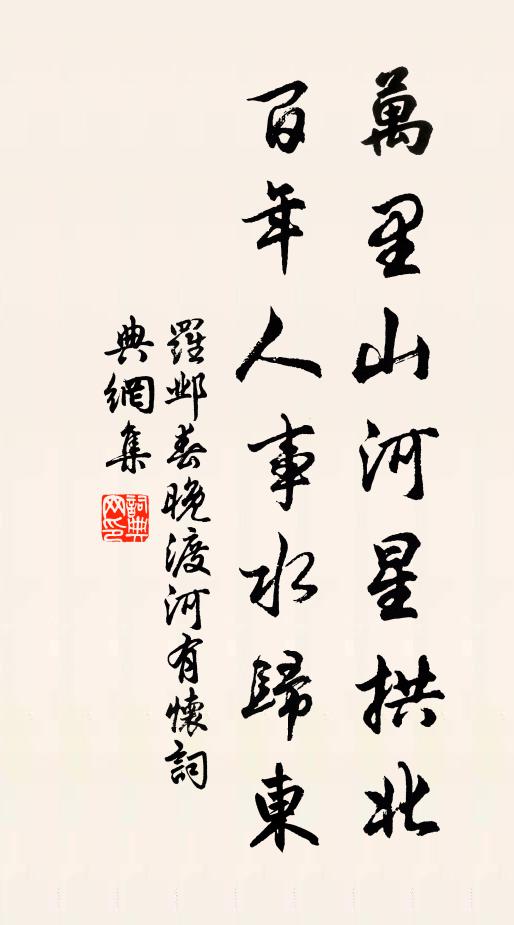 萬里山河星拱北
百年人事水歸東
羅鄴春晚渡河有懷詞
典網集
詞典網印